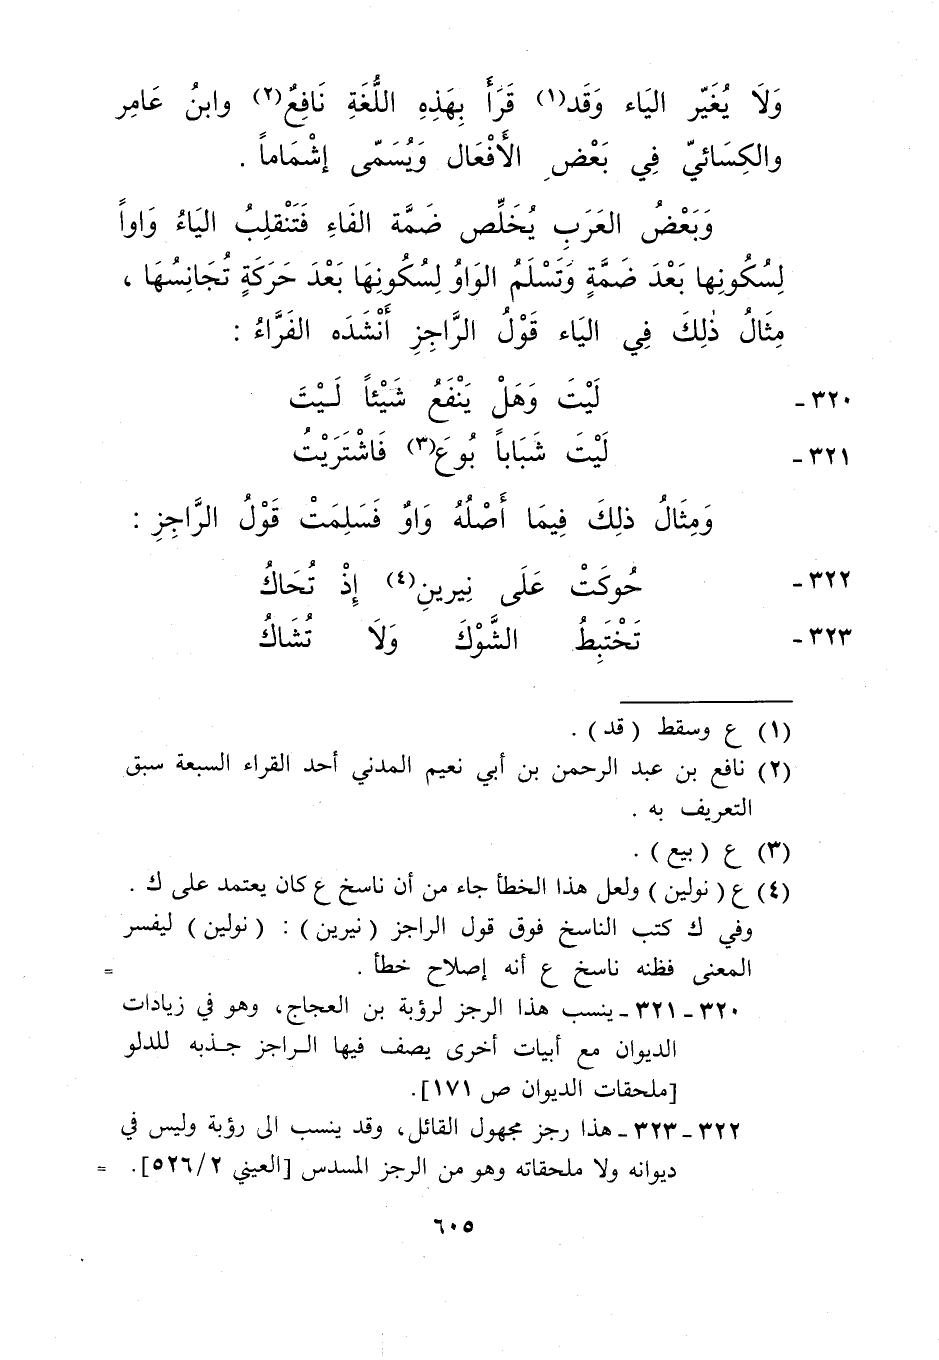 وَلَا يُغَيّر اليَاء وَقَد(١) قَرَأَ بِهَذِهِ اللُّغَةِ نَافِعُ(٢) وابنُ عَامِر
والكِسَائيّ فِي بَعْضِ الأَفْعَال وَيُسَمّى إشْمَاماً .
وَبَعْضُ العَرَبِ يُخَلِّص ضَمَّة الفَاءِ فَتَنْقلِبُ اليَاءُ وَاواً
لِسُكُونِها بَعْدَ ضَمَّةٍ وَتَسْلَمُ الوَاوُ لِسُكُونِهَا بَعْدَ حَرَكَةٍ تُجَانِسُهَا ،
مِثَالُ ذٰلِكَ فِي اليَاء قَوْلُ الرَّاجِزِ أَنْشَدَه الفَرَّاءُ :
٣٢٠- لَيْتَ وَهَلْ يَنْفَعُ شَيْئاً لَيْتَ
٣٢١- لَيْتَ شَبَاباً بُوعَ(٣) فَاشْتَرَيْتُ
وَمِثَالُ ذلِكَ فِيمَا أَصْلُهُ وَاوٌ فَسَلِمَتْ قَوْلُ الرَّاجِزِ :
٣٢٢- حُوكَتْ عَلَى نِيرينِ(٤) إِذْ تُحَاكُ
٣٢٣- تَخْتَبِطُ الشَّوْكَ وَلَا تُشَاكُ
(١) ع وسقط ( قد ) .
(٢) نافع بن عبد الرحمن بن أبي نعيم المدني أحد القراء السبعة سبق
التعريف به .
(٣) ع ( بيع ) .
(٤) ع ( نولين ) ولعل هذا الخطأ جاء من أن ناسخ ع كان يعتمد على ك .
وفي ك كتب الناسخ فوق قول الراجز ( نيرين ) : ( نولين ) ليفسر
المعنى فظنه ناسخ ع أنه إصلاح خطأ . =
٣٢٠-٣٢١- ينسب هذا الرجز لرؤبة بن العجاج، وهو في زيادات
الديوان مع أبيات أخرى يصف فيها الراجز جذبه للدلو
[ملحقات الديوان ص ١٧١].
٣٢٢-٣٢٣- هذا رجز مجهول القائل، وقد ينسب الى رؤبة وليس في
ديوانه ولا ملحقاته وهو من الرجز المسدس [العيني ٥٢٦/٢]. =
٦٠٥